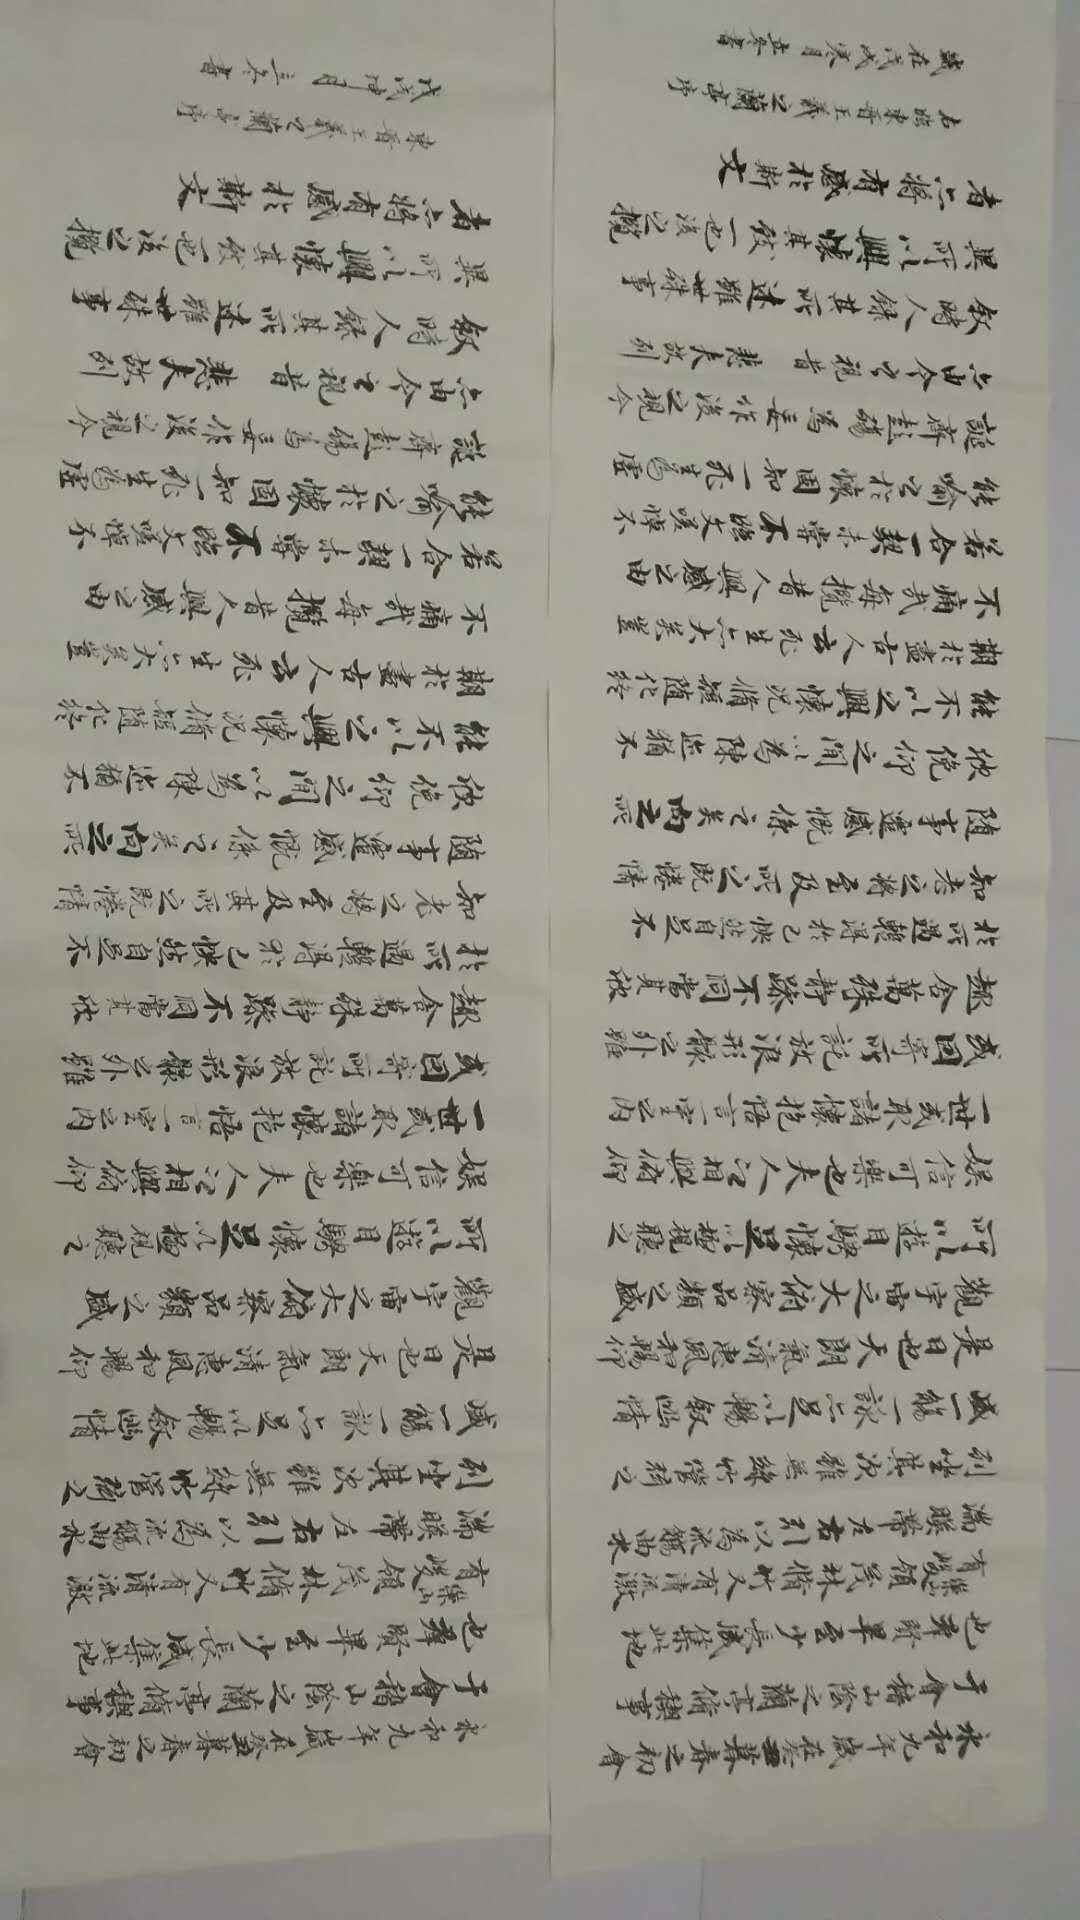 永和九年歲在癸丑暮春之初會
于會稽山陰之蘭亭脩禊事
也群賢畢至少長咸集此地
有崇山峻領茂林脩竹又有清流激
湍暎帶左右引以為流觴曲水
列坐其次雖無絲竹管弦之
盛一觴一詠亦足以暢敘幽情
是日也天朗氣清惠風和暢仰
觀宇宙之大俯察品類之盛
所以遊目騁懷足以極視聽之
娛信可樂也夫人之相與俯仰
一世或取諸懷抱悟言一室之內
或因寄所託放浪形骸之外雖
趣舍萬殊靜躁不同當其欣
於所遇暫得於己快然自足不
知老之將至及所之既惓情
隨事遷感慨係之矣向之所
欣俛仰之間以為陳迹猶不
能不以之興懷況脩短隨化終
期於盡古人云死生亦大矣豈
不痛哉每攬昔人興感之由
若合一契未嘗不臨文嗟悼不
能喻之於懷固知一死生為虛
誕齊彭殤為妄作後之視今
亦由今之視昔 悲夫故列
敘時人錄其所述雖世殊事
異所以興懷其致一也後之攬
者亦將有感於斯文
右臨東晉王羲之蘭亭序
歲在戊戌寒月立冬書
永和九年歲在癸丑暮春之初會
于會稽山陰之蘭亭脩禊事
也群賢畢至少長咸集此地
有崇山峻領茂林脩竹又有清流激
湍暎帶左右引以為流觴曲水
列坐其次雖無絲竹管弦之
盛一觴一詠亦足以暢敘幽情
是日也天朗氣清惠風和暢仰
觀宇宙之大俯察品類之盛
所以遊目騁懷足以極視聽之
娛信可樂也夫人之相與俯仰
一世或取諸懷抱悟言一室之內
或因寄所託放浪形骸之外雖
趣舍萬殊靜躁不同當其欣
於所遇暫得於己快然自足不
知老之將至及其所之既惓情
隨事遷感慨係之矣向之所
欣俛仰之間以為陳迹猶不
能不以之興懷況脩短隨化終
期於盡古人云死生亦大矣豈
不痛哉每攬昔人興感之由
若合一契未嘗不臨文嗟悼不
能喻之於懷固知一死生為虛
誕齊彭殤為妄作後之視今
亦由今之視昔 悲夫故列
敘時人錄其所述雖世殊事
異所以興懷其致一也後之攬
者亦將有感於斯文
東晉王羲之蘭亭序
戊戌仲月立冬書